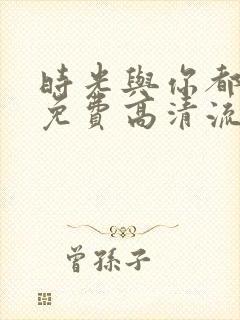 時光與你都
免費高清流
曾孫子